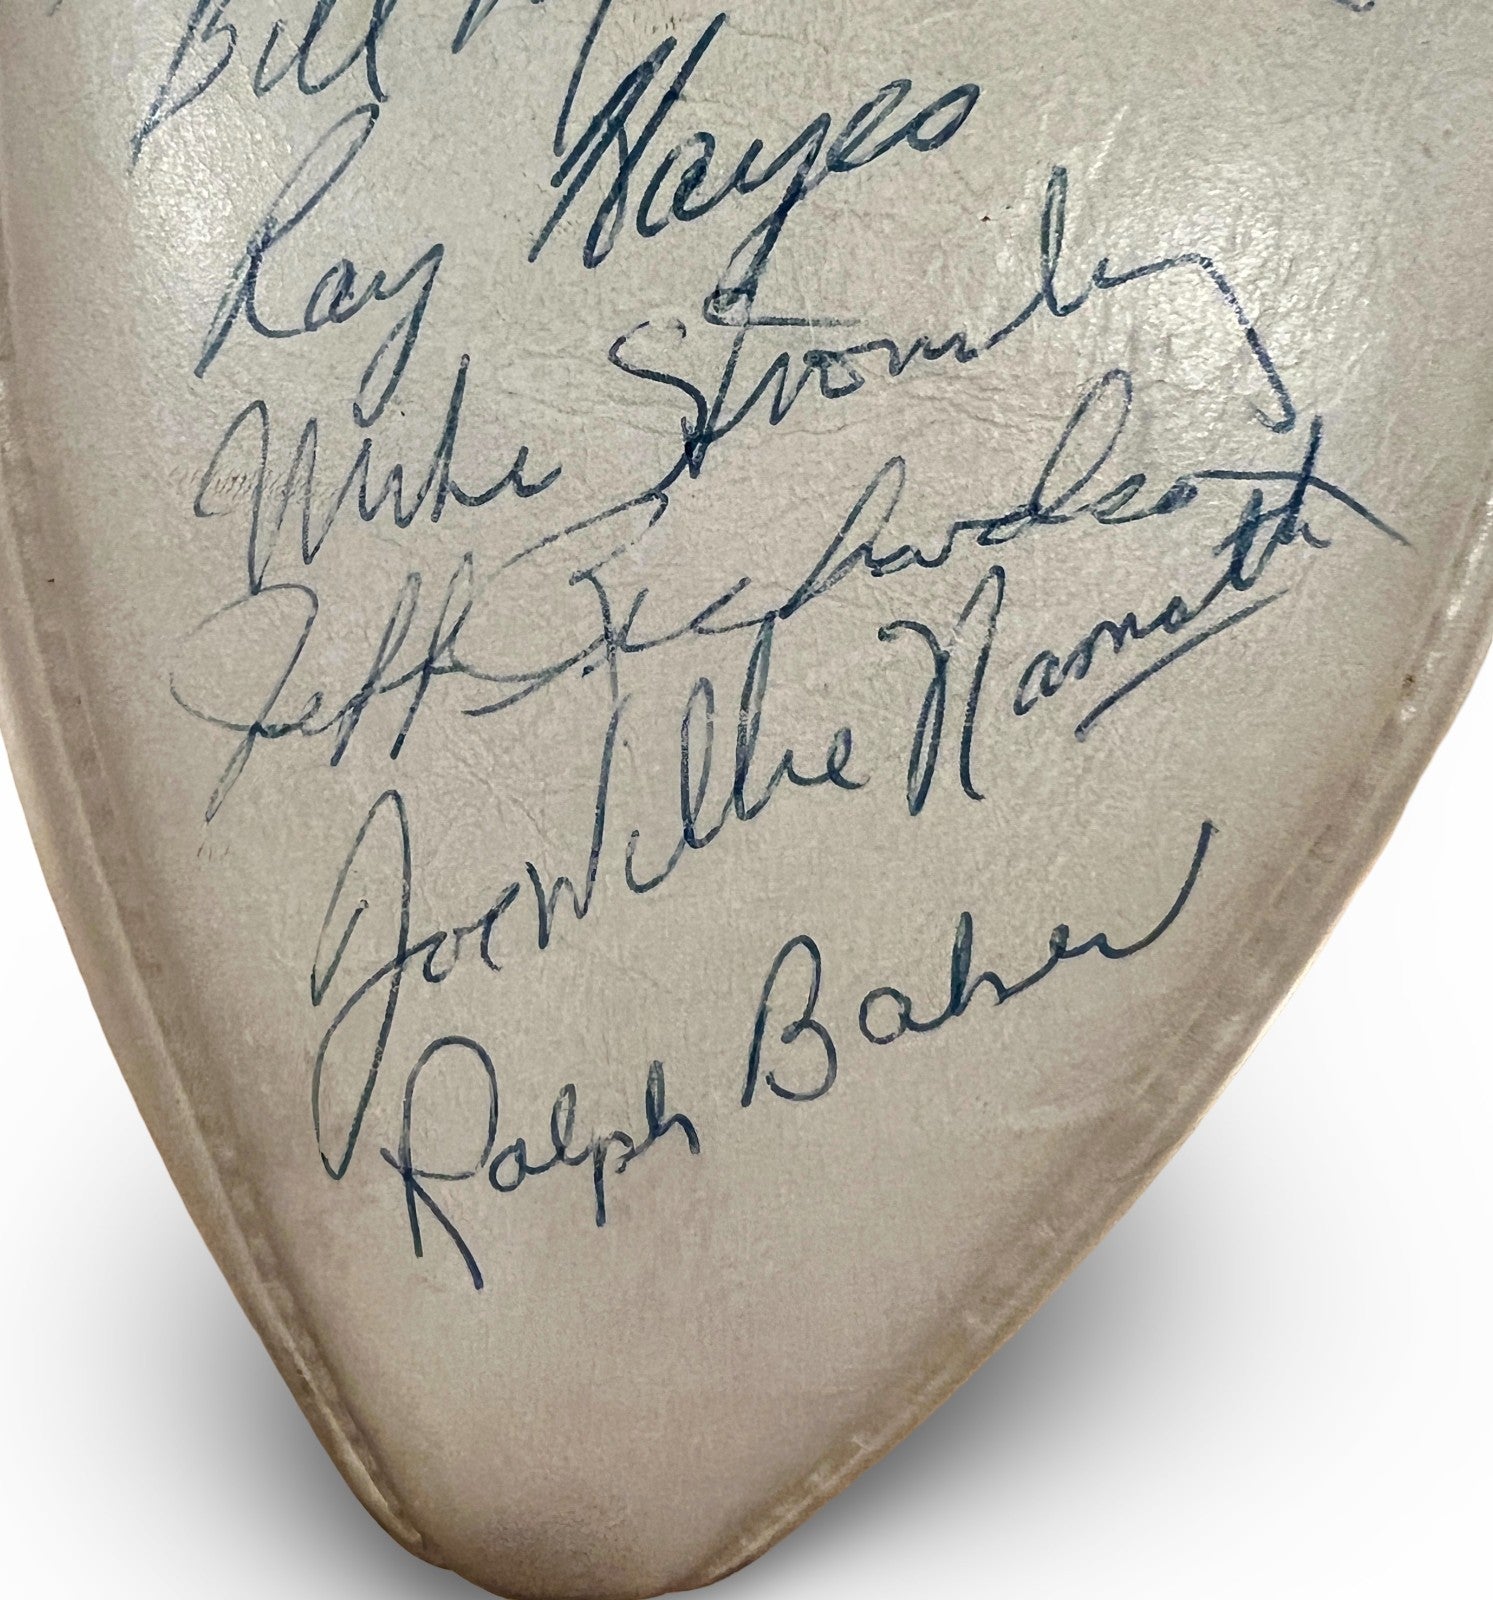 Bill
Ray Hayes
Mike Stromberg
Jeff Richardson
Joe Willie Namath
Ralph Baker